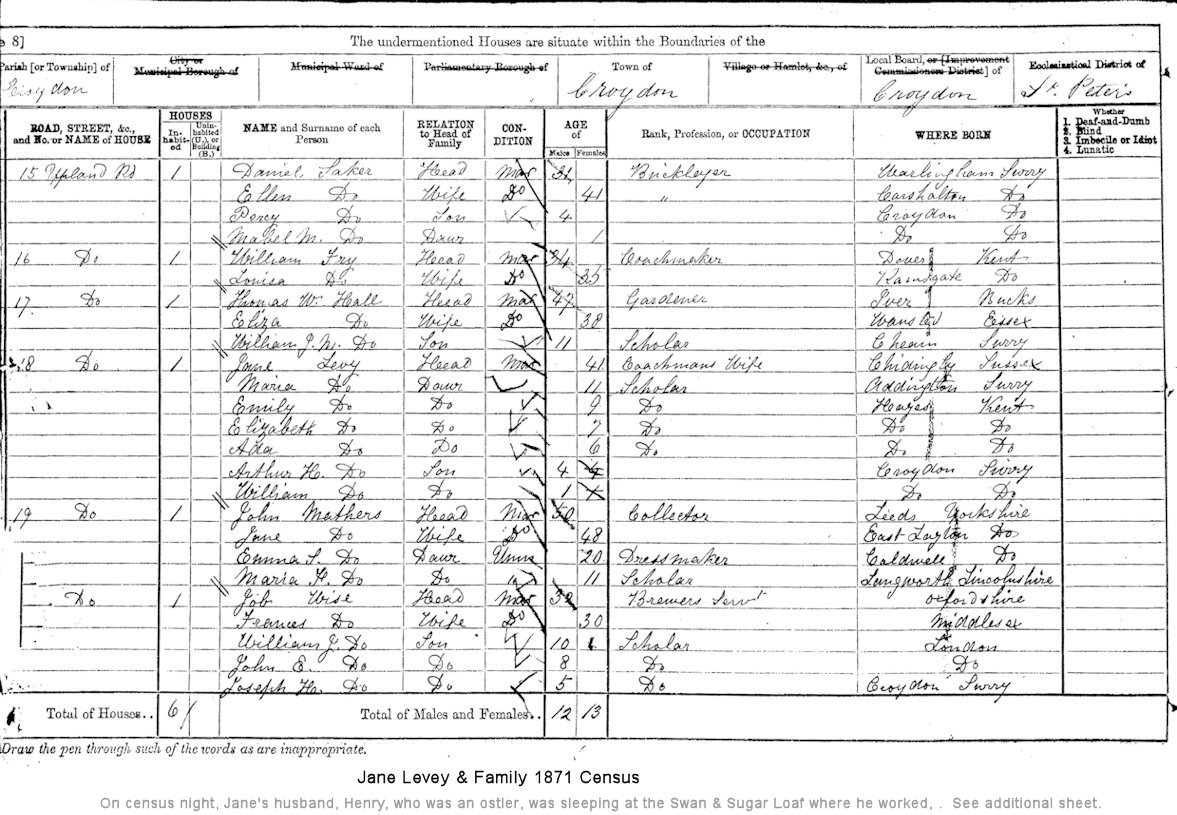 8]
The undermentioned Houses are situate within the Boundaries of the
Parish [or Township] of City or Municipal Borough of Municipal Ward of Parliamentary Borough of Town of Village or Hamlet, &c., of Local Board, or [Improvement Commissioners District] of Ecclesiastical District of
Croydon Croydon Croydon St. Peters
ROAD, STREET, &c., and No. or NAME of HOUSE HOUSES In-habit-ed Unin-habited (U.), or Building (B.) NAME and Surname of each Person RELATION to Head of Family CON-DITION AGE of Males Females Rank, Profession, or OCCUPATION WHERE BORN Whether 1. Deaf-and-Dumb 2. Blind 3. Imbecile or Idiot 4. Lunatic
15 Upland Rd 1 Daniel Saker Head Mar Bricklayer Warlingham Surry
Ellen Do Wife Do 41 " Carshalton Do
Percy Do Son 4 Croydon Do
Mabel M. Do Daur 1 Do Do
16 Do 1 William Fry Head Mar 34 Coachmaker Dover Kent
Louisa Do Wife Do 35 Ramsgate Do
17 Do 1 Thomas W. Hall Head Mar 47 Gardener Iver Bucks
Eliza Do Wife Do 38 Wansted Essex
William J. W. Do Son 11 Scholar Cheam Surry
18 Do 1 Jane Levy Head Mar 41 Coachmans Wife Chidingly Sussex
Maria Do Daur 11 Scholar Addington Surry
Emily Do Do 9 Do Hayes Kent
Elizabeth Do Do 7 Do Do Do
Ada Do Do 6 Do Do Do
Arthur H. Do Son 4 4 Croydon Surry
William Do Do 1 Do Do
19 Do 1 John Mathers Head Mar 50 Collector Leeds Yorkshire
Jane Do Wife Do 48 East Layton Do
Emma S. Do Daur Unm 20 Dressmaker Caldwell Do
Maria H. Do Do 11 Scholar Langworth Lincolnshire
Do 1 Job Wise Head Mar 32 Brewers Servt Oxfordshire
Frances Do Wife Do 30 Middlesex
William J. Do Son 10 Scholar London
John E. Do Do 8 Do Do
Joseph H. Do Do 5 Do Croydon Surry
Total of Houses.. 6 Total of Males and Females.. 12 13
Draw the pen through such of the words as are inappropriate.
Jane Levey & Family 1871 Census
On census night, Jane's husband, Henry, who was an ostler, was sleeping at the Swan & Sugar Loaf where he worked, . See additional sheet.